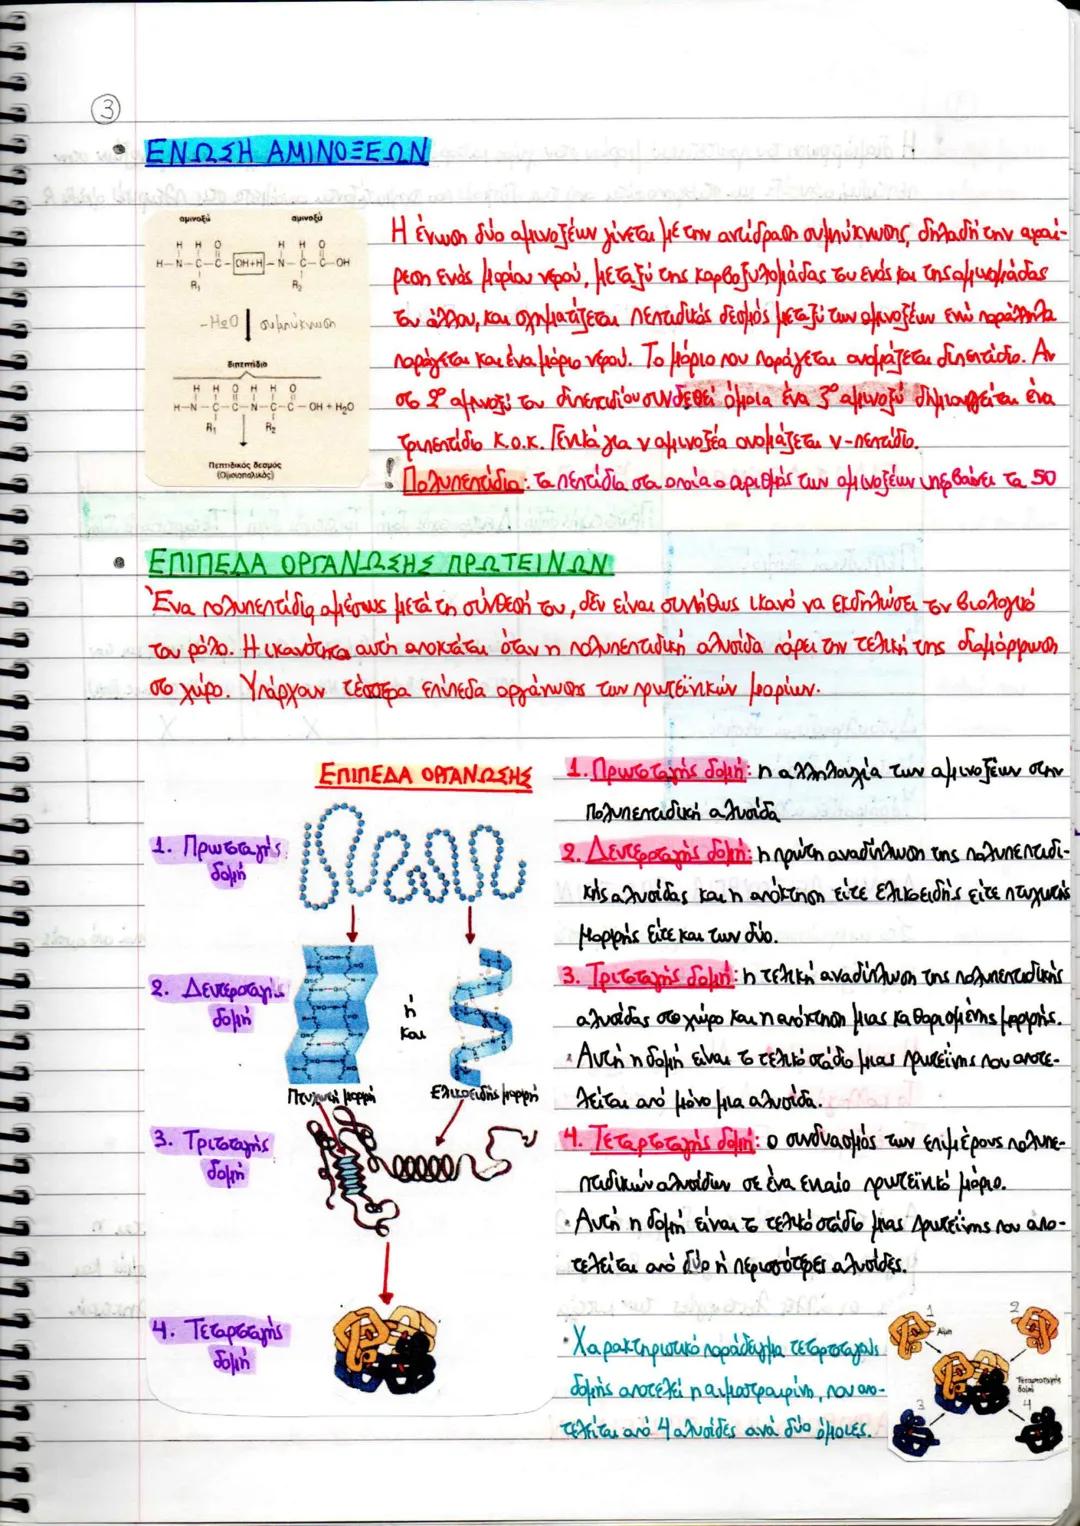 3
• ΕΝΩΣΗ ΑΜΙΝΟΞΕΩΝ
αμινοξύ αμινοξύ
H H O H H O
H-N-C-C-OH+H-N-C-C-OH
R₁ R₂
-H₂O συμπύκνωση
διπεπτίδιο
H H O H H O
H-N-C-C-N-C-C-OH + H₂O
R₁ R₂
Πεπτιδικός δεσμός
(Ομοιοπολικός)
Η ένωση δύο αμινοξέων γίνεται με την αντίδραση συμπύκνωσης, δηλαδή την αφαί-
ρεση ενός μορίου νερού, μεταξύ της καρβοξυλομάδας του ενός και της αμινομάδας
του άλλου, και σχηματίζεται πεπτιδικός δεσμός μεταξύ των αμινοξέων ενώ παράλληλα
παράγεται και ένα μόριο νερού. Το μόριο που παράγεται ονομάζεται διπεπτίδιο. Αν
στο 2º αμινοξύ του διπεπτιδίου συνδεθεί όμοια ένα 3º αμινοξύ δημιουργείται ένα
τριπεπτίδιο κ.ο.κ. Γενικά για ν αμινοξέα ονομάζεται ν-πεπτίδιο.
! Πολυπεπτίδια: τα πεπτίδια στα οποία ο αριθμός των αμινοξέων υπερβαίνει τα 50
• ΕΠΙΠΕΔΑ ΟΡΓΑΝΩΣΗΣ ΠΡΩΤΕΪΝΩΝ
Ένα πολυπεπτίδιο, αμέσως μετά τη σύνθεσή του, δεν είναι συνήθως ικανό να εκδηλώσει τον βιολογικό
του ρόλο. Η ικανότητα αυτή αποκτάται όταν η πολυπεπτιδική αλυσίδα πάρει την τελική της διαμόρφωση
στο χώρο. Υπάρχουν τέσσερα επίπεδα οργάνωσης των πρωτεϊνικών μορίων.
ΕΠΙΠΕΔΑ ΟΡΓΑΝΩΣΗΣ
1. Πρωτοταγής
δομή
2. Δευτεροταγής
δομή
ή
και
Πτυχωτή μορφή Ελικοειδής μορφή
3. Τριτοταγής
δομή
4. Τεταρτοταγής
δομή
1. Πρωτοταγής δομή: η αλληλουχία των αμινοξέων στην
πολυπεπτιδική αλυσίδα
2. Δευτεροταγής δομή: η πρώτη αναδίπλωση της πολυπεπτιδι-
κής αλυσίδας και η απόκτηση είτε ελικοειδής είτε πτυχωτής
μορφής είτε και των δύο.
3. Τριτοταγής δομή: η τελική αναδίπλωση της πολυπεπτιδικής
αλυσίδας στο χώρο και η απόκτηση μιας καθορισμένης μορφής.
• Αυτή η δομή είναι το τελικό στάδιο μιας πρωτεΐνης που αποτε-
λείται από μόνο μια αλυσίδα.
4. Τεταρτοταγής δομή: ο συνδυασμός των επιμέρους πολυπε-
πτιδικών αλυσίδων σε ένα ενιαίο πρωτεϊνικό μόριο.
• Αυτή η δομή είναι το τελικό στάδιο μιας πρωτεΐνης που απο-
τελείται από δύο ή περισσότερες αλυσίδες.
• Χαρακτηριστικό παράδειγμα τεταρτοταγούς
δομής αποτελεί η αιμοσφαιρίνη, που απο-
τελείται από 4 αλυσίδες ανά δύο όμοιες.
1 2
Αίμη
Τεταρτοταγής
δομή
3 4